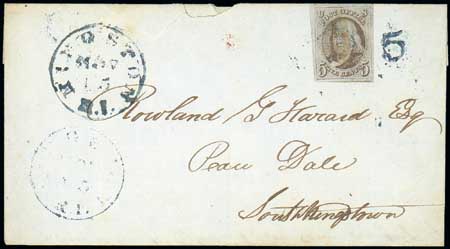 KINGSTON
MAY
15
R.I.
POST OFFICE
5 FIVE CENTS 5
5
Rowland G Hazard Esq
Peace Dale
South Kingstown
R.I.